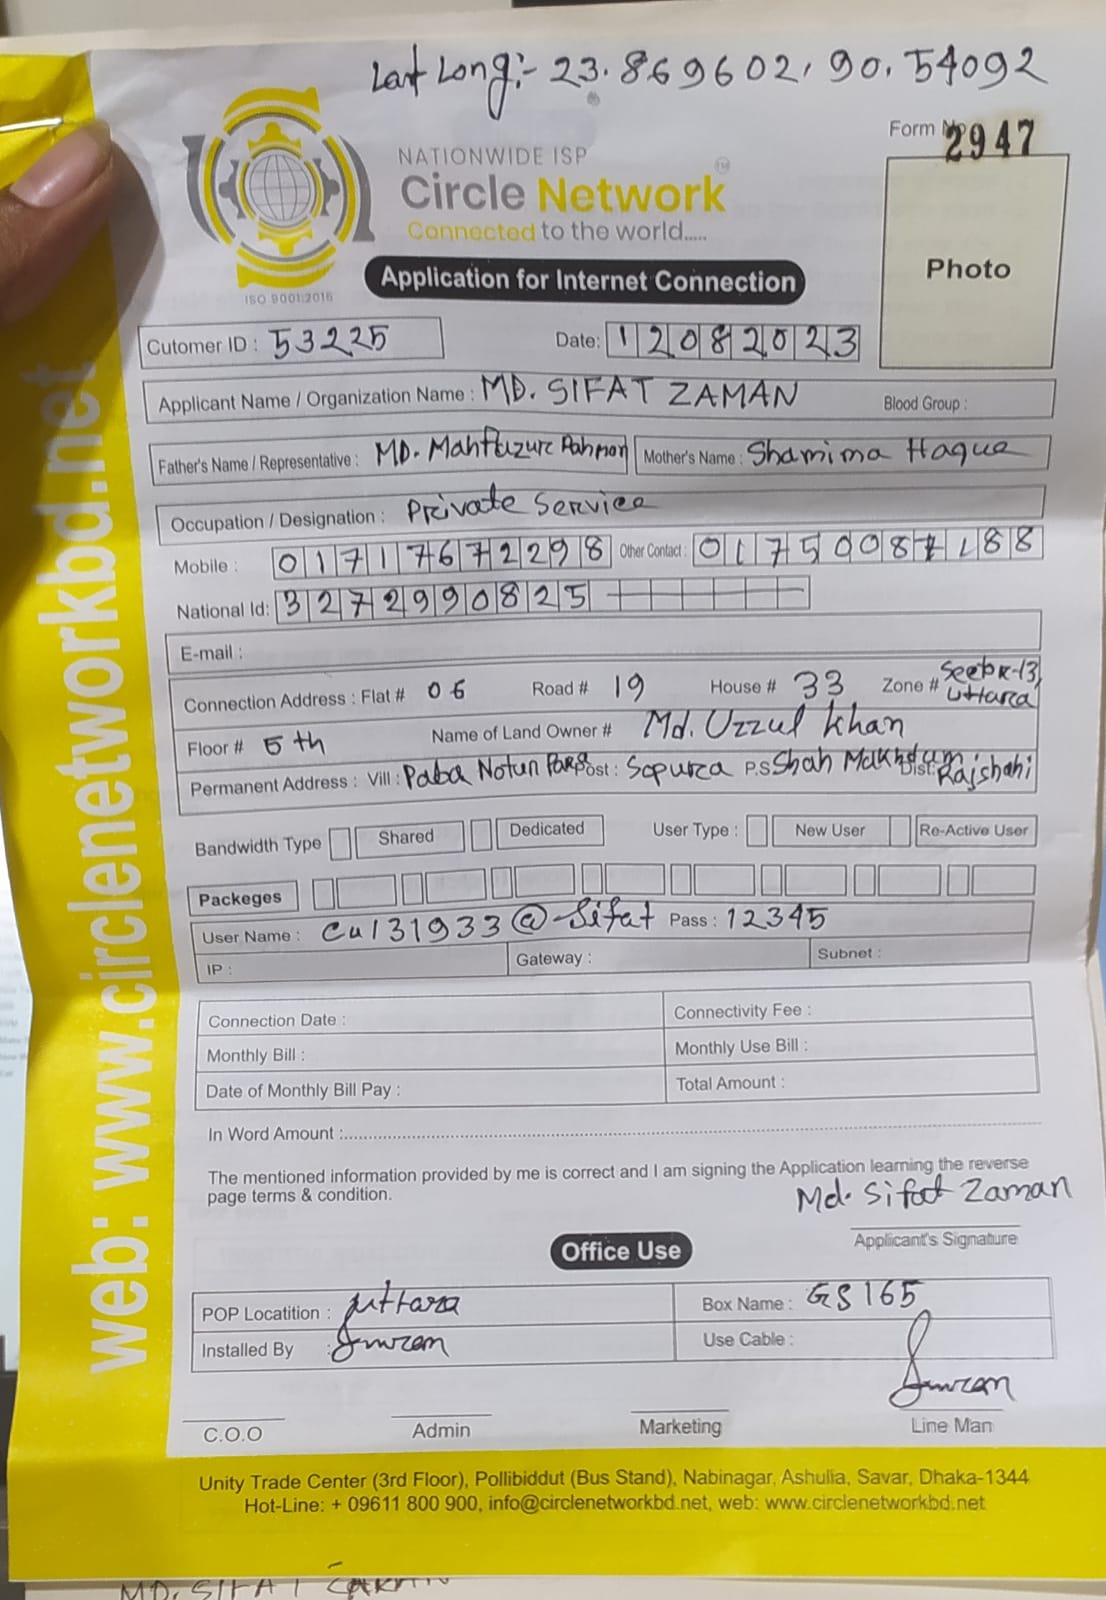 Lat Long:- 23.869602, 90.54092
Form No 2947
NATIONWIDE ISP
Circle Network
TM
Connected to the world.....
ISO 9001:2015
Application for Internet Connection
Photo
Cutomer ID : 53225 Date: 12082023
Applicant Name / Organization Name : MD. SIFAT ZAMAN Blood Group :
Father's Name / Representative : MD. Mahfuzur Rahman Mother's Name : Shamima Haque
Occupation / Designation : Private Service
Mobile : 01717672298 Other Contact : 01750087188
National Id: 3272990825
E-mail :
Connection Address : Flat # 06 Road # 19 House # 33 Zone # Sector-13, Uttara
Floor # 5th Name of Land Owner # Md. Uzzul Khan
Permanent Address : Vill : Paba Notun Para Post : Sopura P.S Shah Makhdum Dist: Rajshahi
Bandwidth Type Shared Dedicated User Type : New User Re-Active User
Packeges
User Name : cu131933@Sifat Pass : 12345
IP : Gateway : Subnet :
Connection Date : Connectivity Fee :
Monthly Bill : Monthly Use Bill :
Date of Monthly Bill Pay : Total Amount :
In Word Amount :
The mentioned information provided by me is correct and I am signing the Application learning the reverse
page terms & condition.
Md. Sifat Zaman
Applicant's Signature
Office Use
POP Locatition : Uttara Box Name : GS165
Installed By : Imran Use Cable :
Imran
C.O.O Admin Marketing Line Man
Unity Trade Center (3rd Floor), Pollibiddut (Bus Stand), Nabinagar, Ashulia, Savar, Dhaka-1344
Hot-Line: + 09611 800 900, info@circlenetworkbd.net, web: www.circlenetworkbd.net
web: www.circlenetworkbd.net
MD. SIFAT ZAMAN